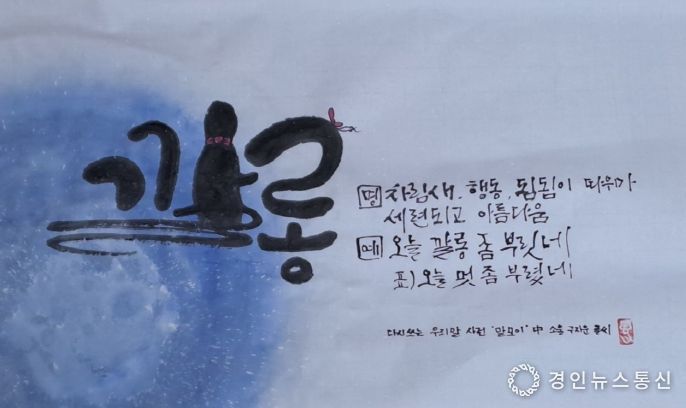 깔롱
명 차림새, 행동, 됨됨이 따위가
세련되고 아름다움
예 오늘 깔롱 좀 부릿네
표) 오늘 멋 좀 부렸네
다시쓰는 우리말 사전 '말모이' 中 소흘 구자운
경인뉴스통신